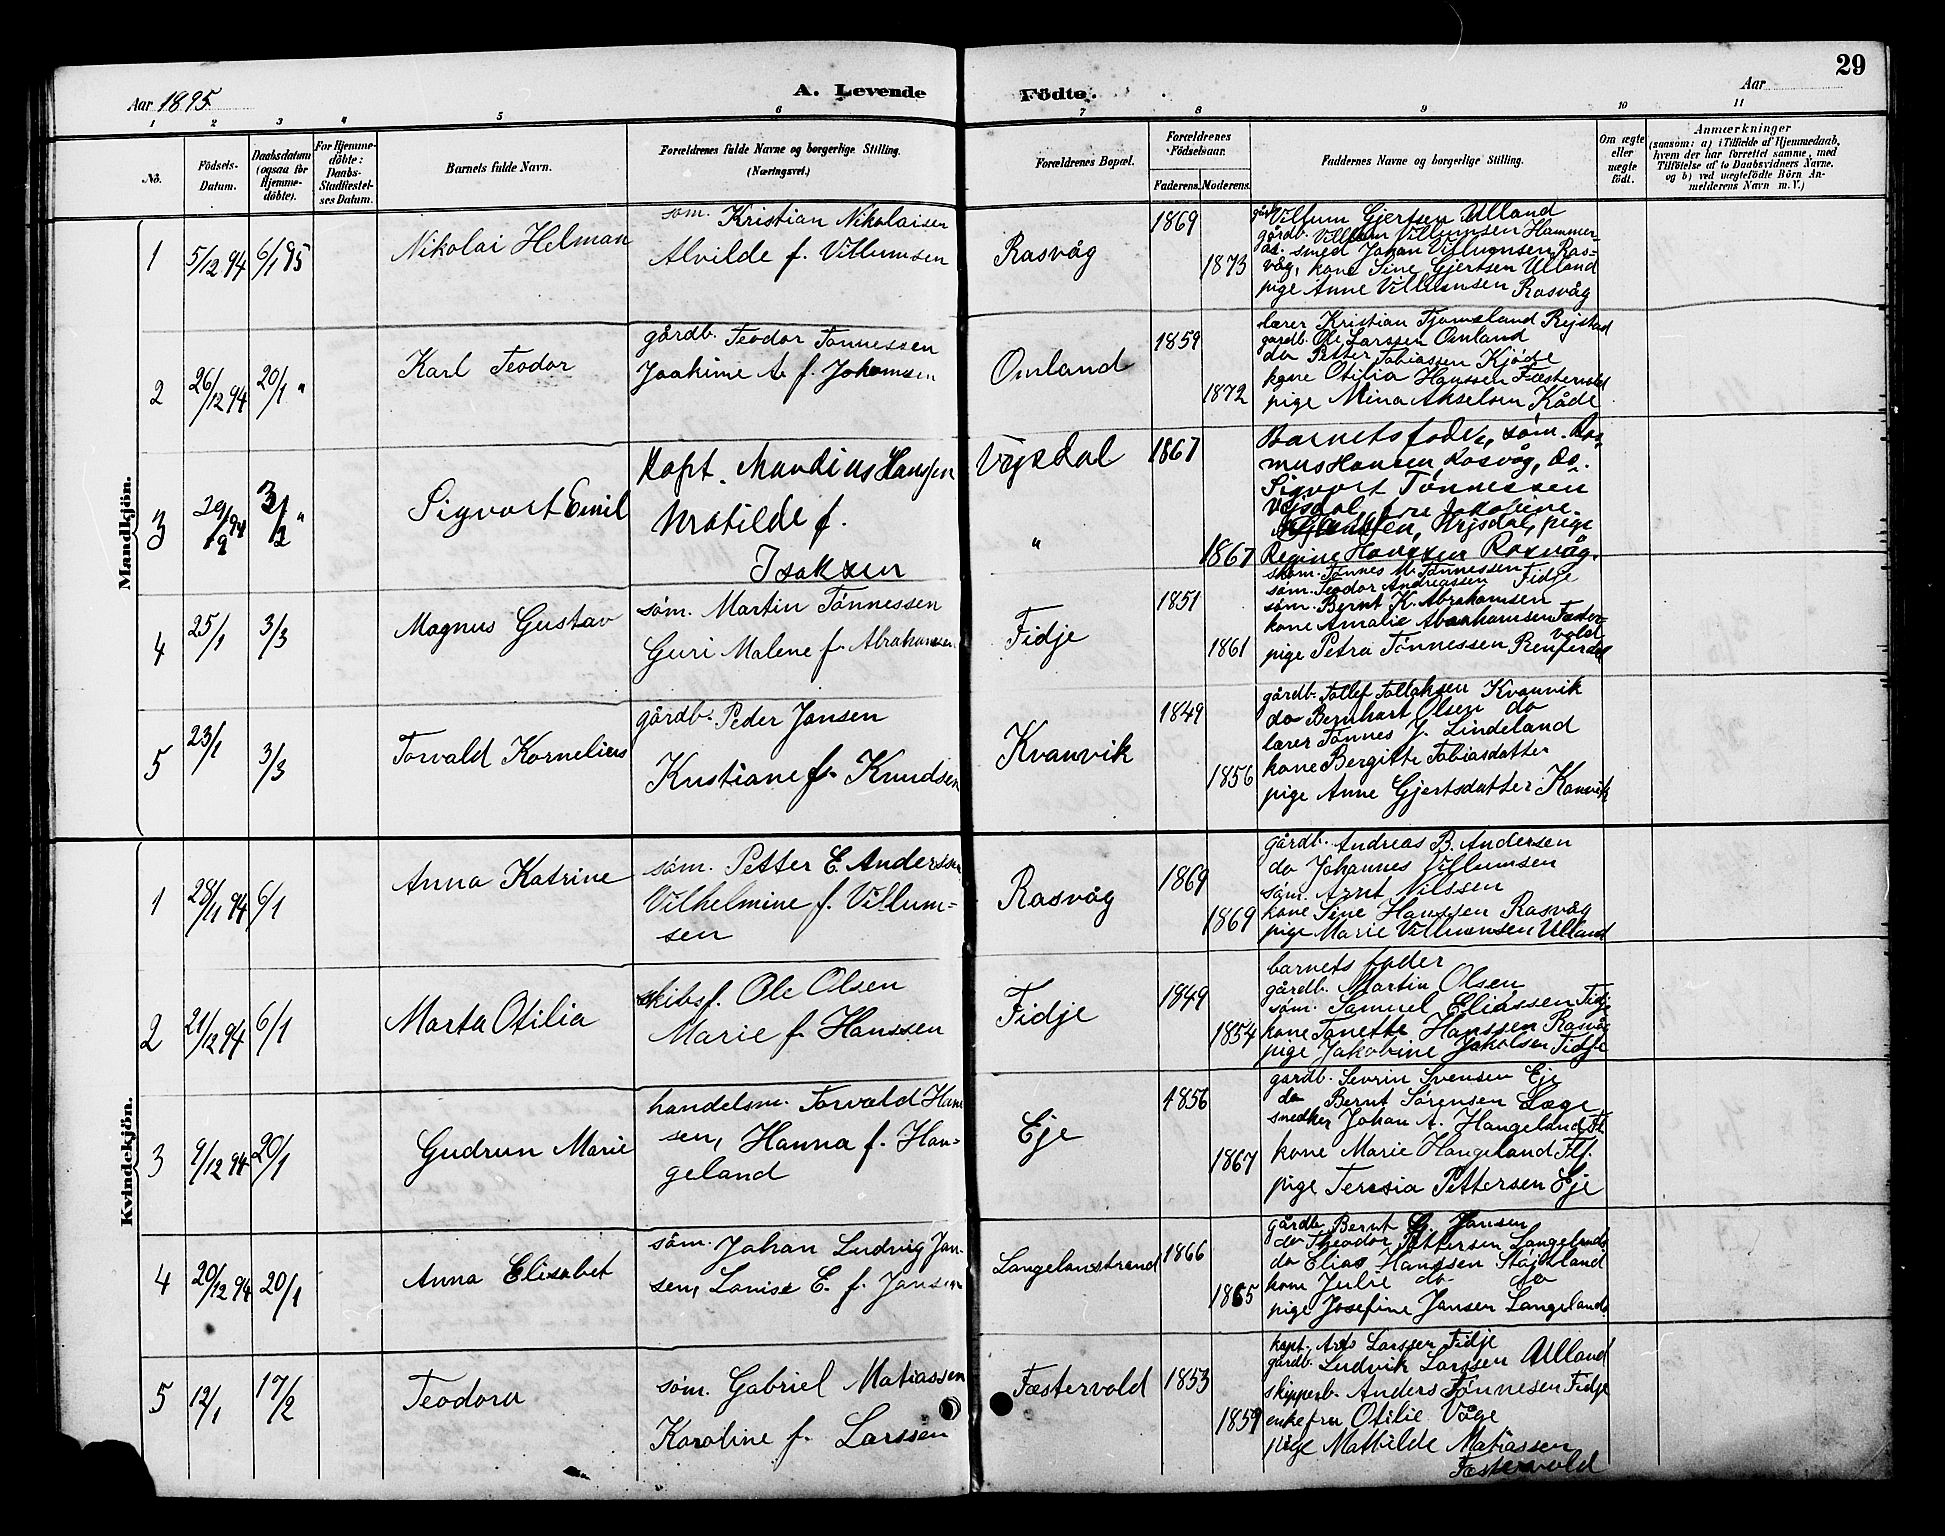 29
Aar 1895.
A. Levende Födte.
Aar
1 2 3 4 5 6 7 8 9 10 11
No.
Födsels-Datum.
Daabsdatum (ogsaa for Hjemme-döbte).
For Hjemme-döbte: Daabs-Stadfæstel-ses Datum.
Barnets fulde Navn.
Forældrenes fulde Navne og borgerlige Stilling. (Næringsvei.)
Forældrenes Bopæl.
Forældrenes Födselsaar.
Faderens. Moderens.
Faddernes Navne og borgerlige Stilling.
Om ægte eller uægte födt.
Anmærkninger
(saasom: a) i Tilfælde af Hjemmedaab,
hvem der har forrettet samme, med
Tilföielse af to Daabsvidners Navne.
og b) ved uægtefödte Börn An-
melderens Navn m. V.)
Mandkjön.
1 5/12 94 6/1 95
Nikolai Helman
söm. Kristian Nikolaisen
Alvilde f. Villumsen
Rasvåg
1869
1873
gårdb. Villum Gjertsen Ulland
gårdb. Villum Villumsen Hammer-
ås. smed Johan Villumsen Ras-
våg, kone Sine Gjertsen Ulland
pige Anne Villumsen Rasvåg
2 26/12 94 20/1 "
Karl Teodor
gårdb. Teodor Tönnessen
Joakime A. f. Johamsen
Omland
1859
1872
lærer Kristian Tjomsland Rejstad
gårdb. Ole Larssen Omland
do Petter Tobiassen Kjöde
kone Otilia Hanssen Fæstervold
pige Mina Akselsen Kåde
3 29/12 94 3/2 "
Sigvart Emil
Kapt. Mandius Hansen
Matilde f.
Isaksen
Vejsdal
"
1867
1867
Barnets fader, söm. Ras-
mus Hansen, Rasvåg, do.
Sigvart Tönnessen
Vejsdal, fru Jakobine
Vejsdal, pige
Regine Hanssen Rasvåg.
4 25/1 3/3
Magnus Gustav
söm. Martin Tönnessen
Guri Malene f. Abrahamsen
Fidje
1851
1861
skom. Tönnes M. Tönnessen
söm. Teodor Andreassen Fidje
söm. Bernt K. Abrahamsen
kone Amalie Abrahamsen Fæster-
vold
pige Petra Tönnessen
5 23/1 3/3
Torvald Kornelius
gårdb. Peder Jansen
Kristiane f. Knudsen
Kvanvik
1849
1856
gårdb. Tollef Tollaksen Kvanvik
do Bernhart Olsen do
lærer Tönnes J. Lindeland
kone Bergitte Tobiasdatter
pige Anne Gjertsdatter Kanvik
Kvindekjön.
1 28/11 94 6/1
Anna Katrine
söm. Petter E. Anderssen
Vilhelmine f. Villum-
sen
Rasvåg
1869
1869
gårdb. Andreas B. Andersen
do Johannes Villumsen
söm. Arnt Nilssen
kone Sine Hanssen Rasvåg
pige Marie Villumsen Ulland
2 21/12 94 6/1
Marta Otilia
skibsf. Ole Olsen
Marie f. Hanssen
Fidje
1849
1854
barnets fader
gårdb. Martin Olsen
söm. Samuel Eliassen Fidje
kone Tanette Hanssen Rasvåg
pige Jakobine Jakobsen Fidje
3 9/12 94 20/1
Gudrun Marie
handelsm. Torvald Han-
sen, Hanna f. Han-
geland
Eje
1856
1867
gårdb. Sevrin Svensen Eje
do Bernt Sörensen Læge
snedker Johan A. Hangeland Fl.
kone Marie Hangeland Fl.
pige Teresia Pettersen Eje
4 20/12 94 20/1
Anna Elisabet
söm. Johan Ludvig Jan-
sen, Lovise E. f. Jansen
Langelanstrand
1866
1865
gårdb. Bernt G. Jansen
do Theodor Pettersen Langeland
do Elias Hanssen
kone Julie do do
pige Josefine Jansen Langeland
5 12/1 17/2
Teodora
söm. Gabriel Matiassen
Karoline f. Larssen
Fæstervold
1853
1859
kapt. Larssen Fidje
gårdb. Ludvik Larssen Ulland
skipperb. Anders Tönnesen Fidje
enkefru Otilie Våge
pige Mathilde Matiassen
Fæstervold